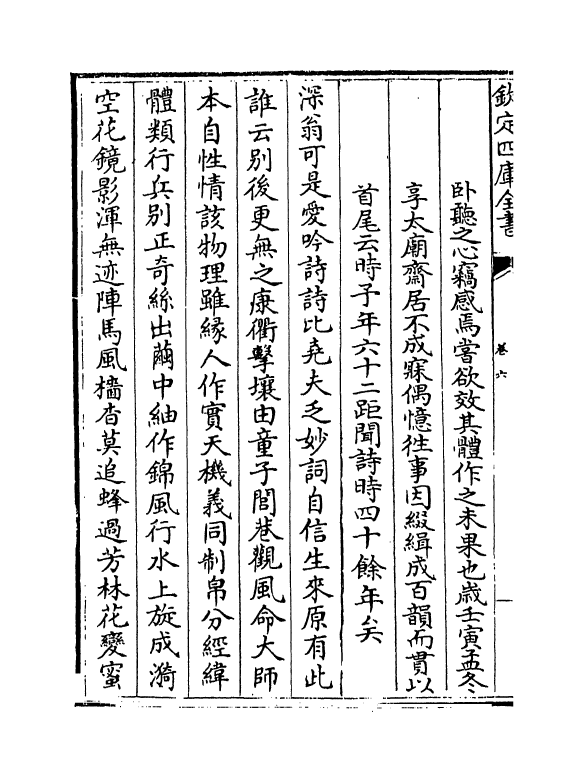 欽定四庫全書
卷六
卧聽之心竊感焉嘗欲效其體作之未果也歲壬寅孟冬
享太廟齋居不成寐偶憶徃事因綴緝成百韻而貫以
首尾云時予年六十二距聞詩時四十餘年矣
深翁可是愛吟詩詩比堯夫乏妙詞自信生來原有此
誰云別後更無之康衢擊壤由童子閭巷觀風命大師
本自性情該物理雖縁人作實天機義同制帛分經緯
體類行兵別正奇絲出繭中紬作錦風行水上旋成漪
空花鏡影渾無迹陣馬風檣杳莫追蜂過芳林花變蜜